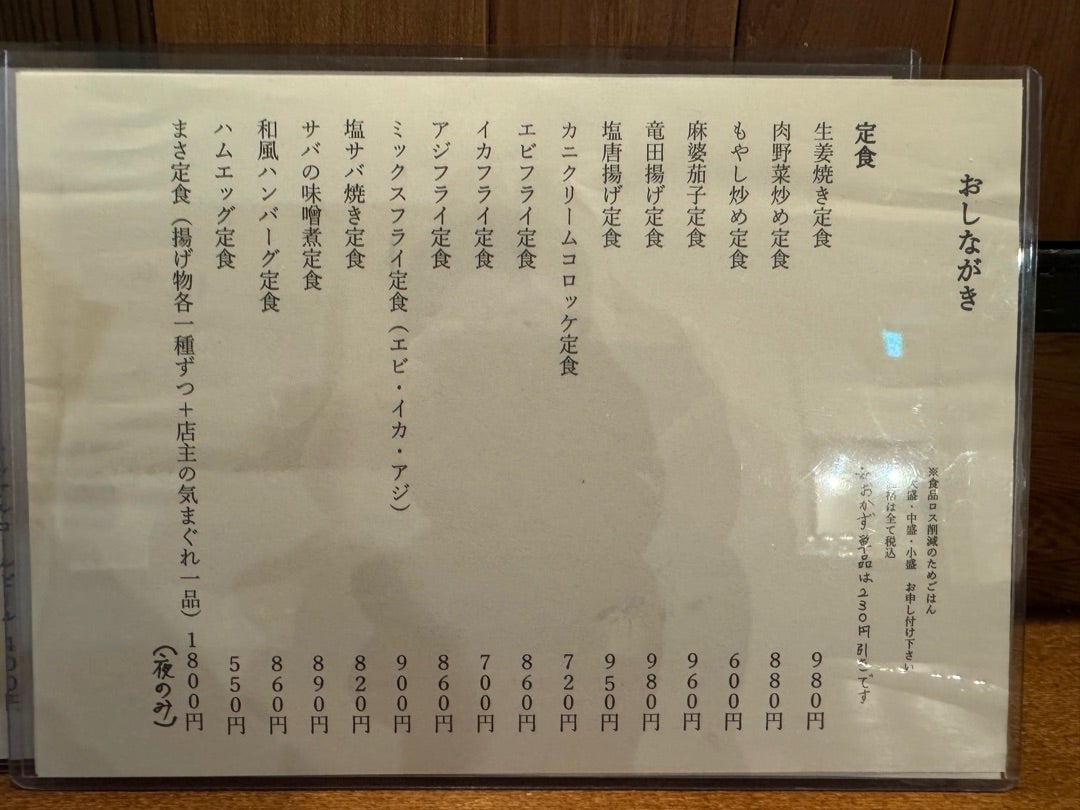 おしながき
※食品ロス削減のためごはん
大盛・中盛・小盛 お申し付け下さい
は全て税込
※おかず単品は230円引きです
定食
生姜焼き定食 980円
肉野菜炒め定食 880円
もやし炒め定食 600円
麻婆茄子定食 960円
竜田揚げ定食 980円
塩唐揚げ定食 950円
カニクリームコロッケ定食 720円
エビフライ定食 860円
イカフライ定食 700円
アジフライ定食 860円
ミックスフライ定食(エビ・イカ・アジ) 900円
塩サバ焼き定食 820円
サバの味噌煮定食 890円
和風ハンバーグ定食 860円
ハムエッグ定食 550円
まさ定食(揚げ物各一種ずつ+店主の気まぐれ一品) 1800円
(夜のみ)